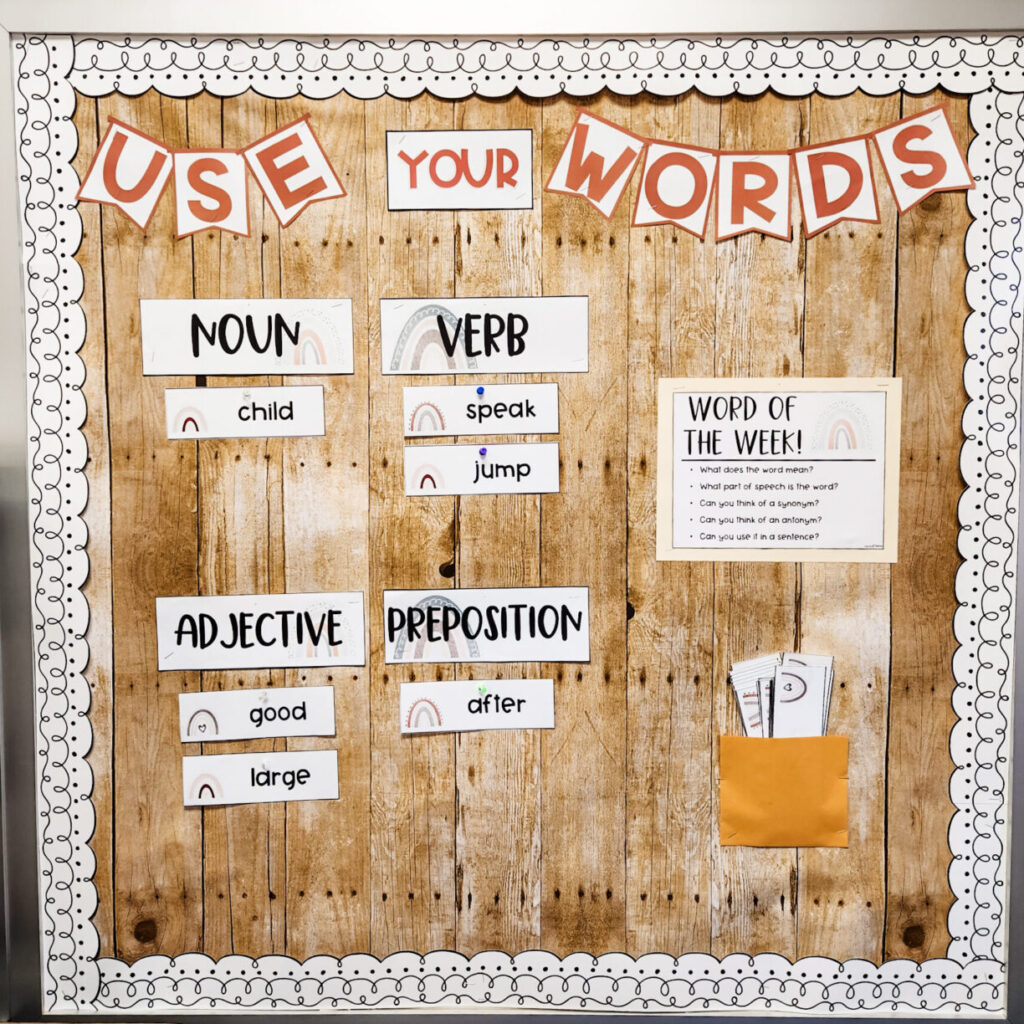 USE YOUR WORDS
NOUN
child
VERB
speak
jump
WORD OF
THE WEEK!
• What does the word mean?
• What part of speech is the word?
• Can you think of a synonym?
• Can you think of an antonym?
• Can you use it in a sentence?
ADJECTIVE
good
large
PREPOSITION
after